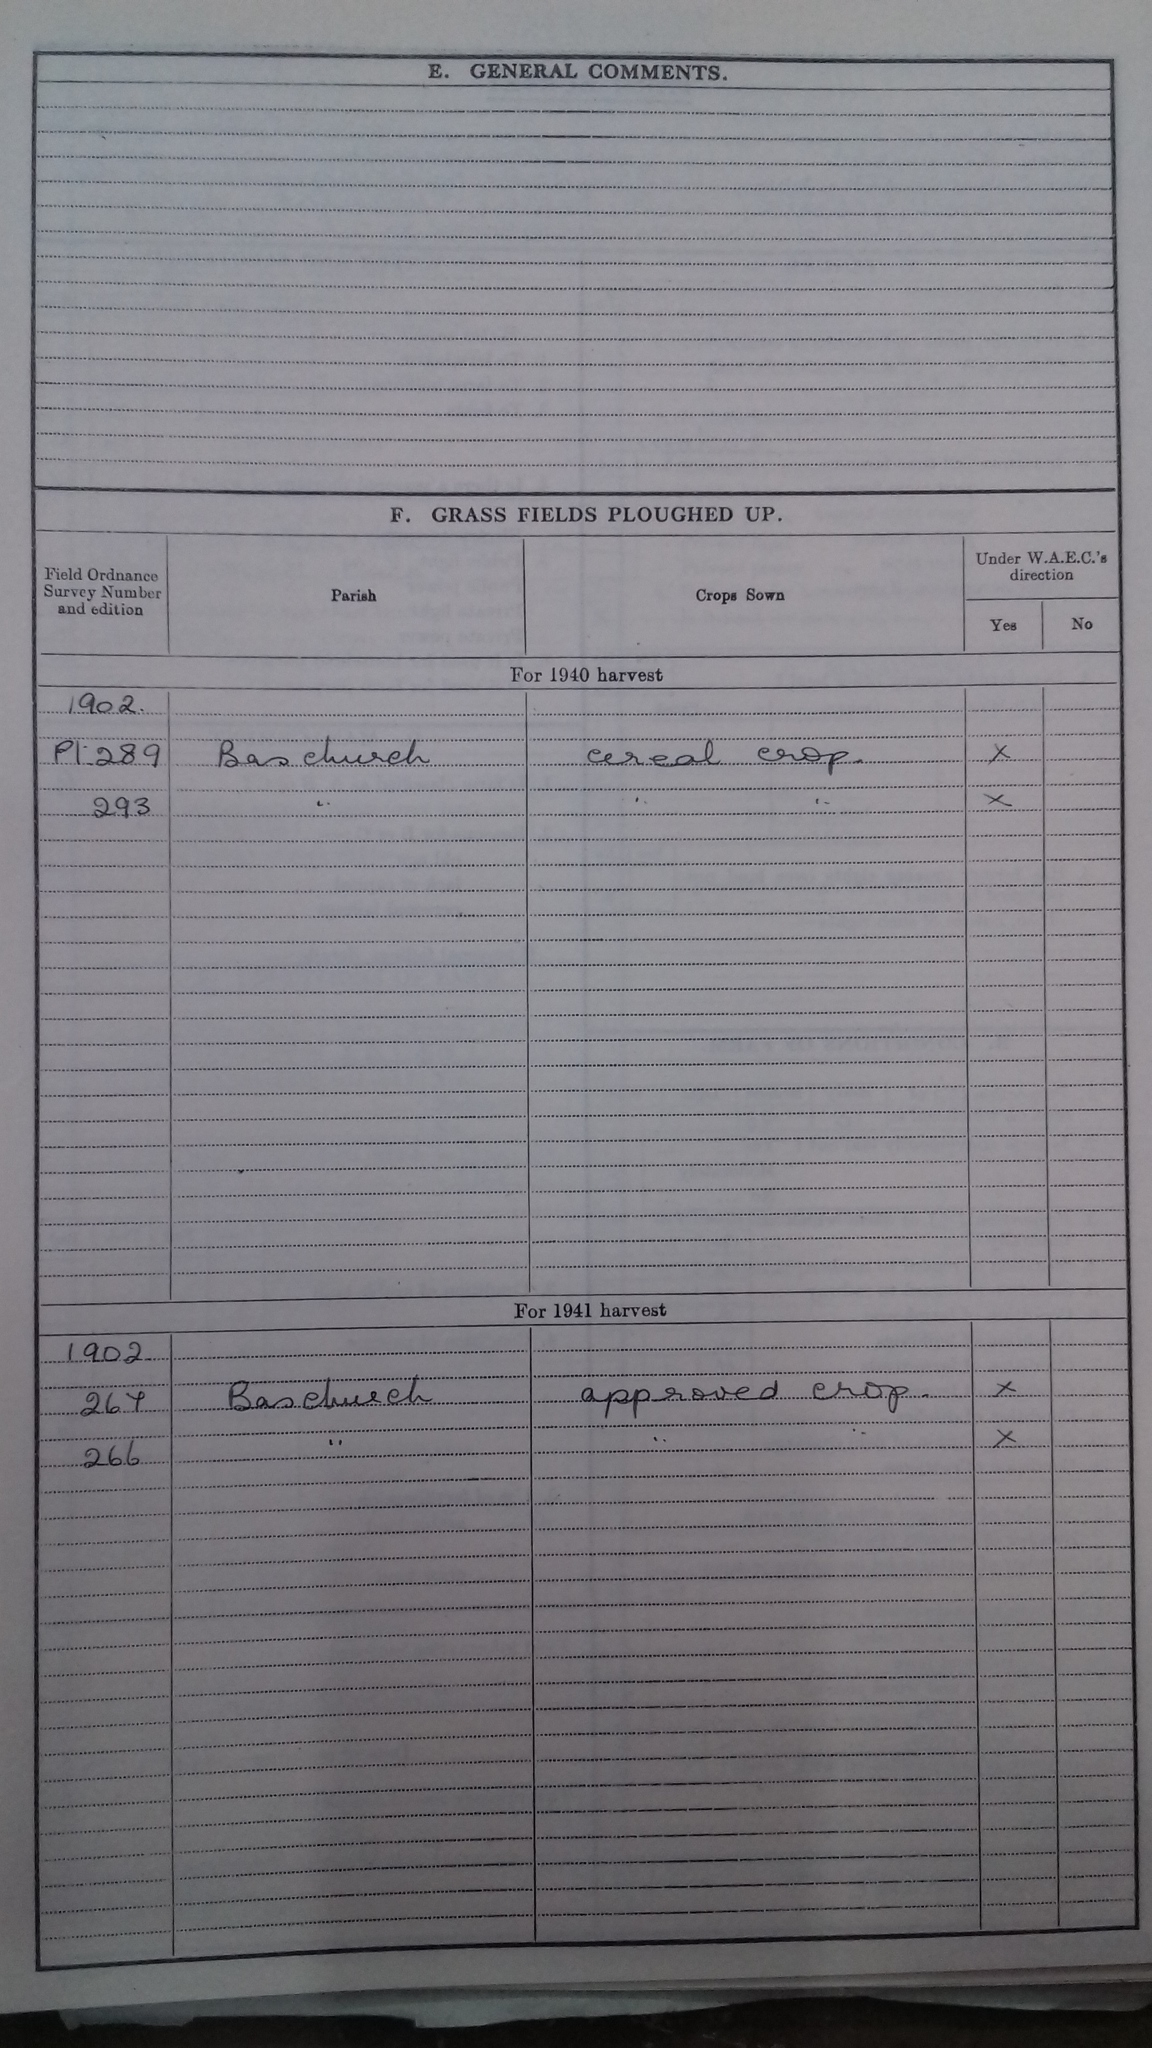 E. GENERAL COMMENTS.
F. GRASS FIELDS PLOUGHED UP.
Field Ordnance Survey Number and edition
Parish
Crops Sown
Under W.A.E.C.'s direction
Yes No
For 1940 harvest
1902.
Pt. 289 Baschurch cereal crop. X
293 " " " X
For 1941 harvest
1902
267 Baschurch approved crop. X
266 " " " X